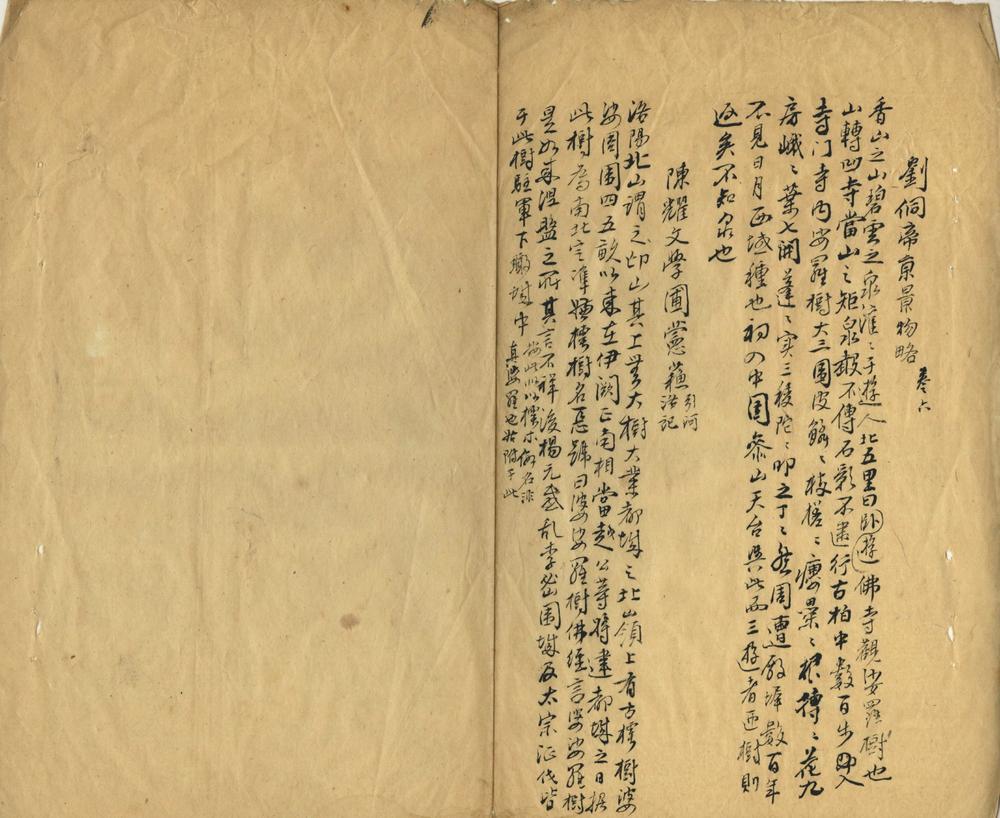 劉侗帝京景物略 卷六
香山之山碧雲之泉灌灌于遊人北五里曰卧遊佛寺觀娑羅樹也
山轉凹寺當山之矩泉聲不傳石影不逮行古柏中數百步即入
寺门寺内娑羅樹大三圍皮鱗鱗枝槎槎癭纍纍根摶摶花九
房峨峨葉七開蓬蓬实三稜陀陀叩之丁丁然周遭殿墀數百年
不見日月西域種也初入中国崇山天台與此而三遊者匝樹則
返矣不知泉也
陳耀文學圃萱蘇 引河洛記
洛陽北山謂之邙山其上無大樹大業都城之北山嶺上有古樗樹婆
娑周圍四五畝以来在伊阙正南相當越公等將建都城之日据
此樹為南北定準嫌樗樹名惡號曰婆娑羅樹佛经言婆娑羅樹
是如来涅盤之所其言不祥後楊元感乱李密圍城及太宗征伐皆
于此樹駐軍下瞰城中 按此似以樗木假名非真娑羅也姑附于此